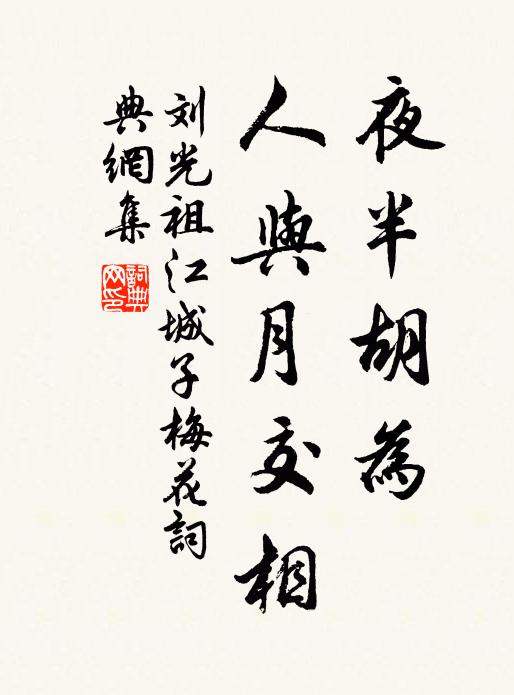 夜半胡為
人與月交相
刘光祖江城子梅花詞
典網集
詞典
网印